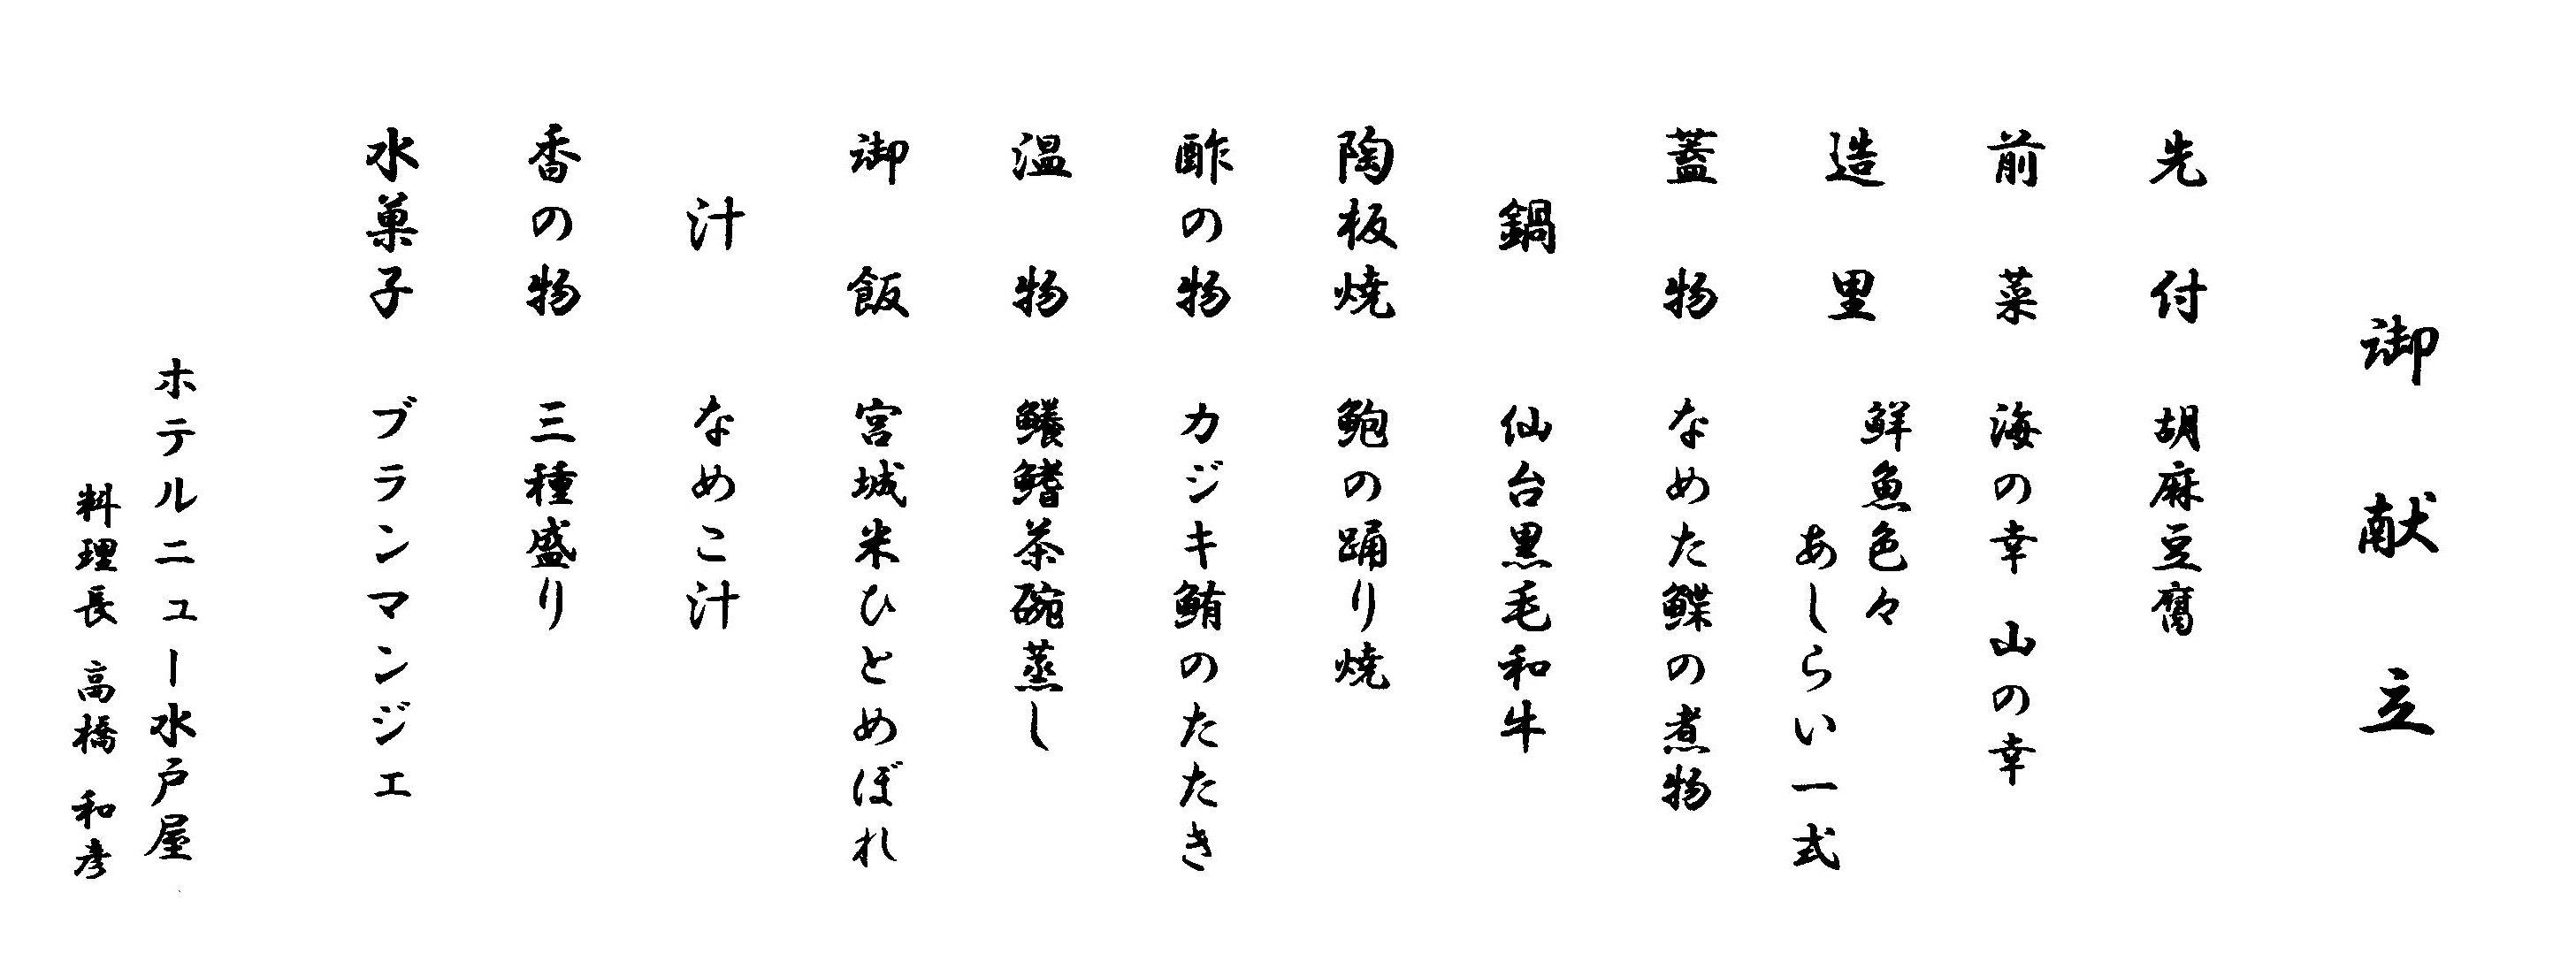 御献立
先付 胡麻豆腐
前菜 海の幸 山の幸
造里 鮮魚色々
あしらい一式
蓋物 なめた鰈の煮物
鍋 仙台黒毛和牛
陶板焼 鮑の踊り焼
酢の物 カジキ鮪のたたき
温物 鱶鰭茶碗蒸し
御飯 宮城米ひとめぼれ
汁 なめこ汁
香の物 三種盛り
水菓子 ブランマンジェ
ホテルニュー水戸屋
料理長 高橋 和彦